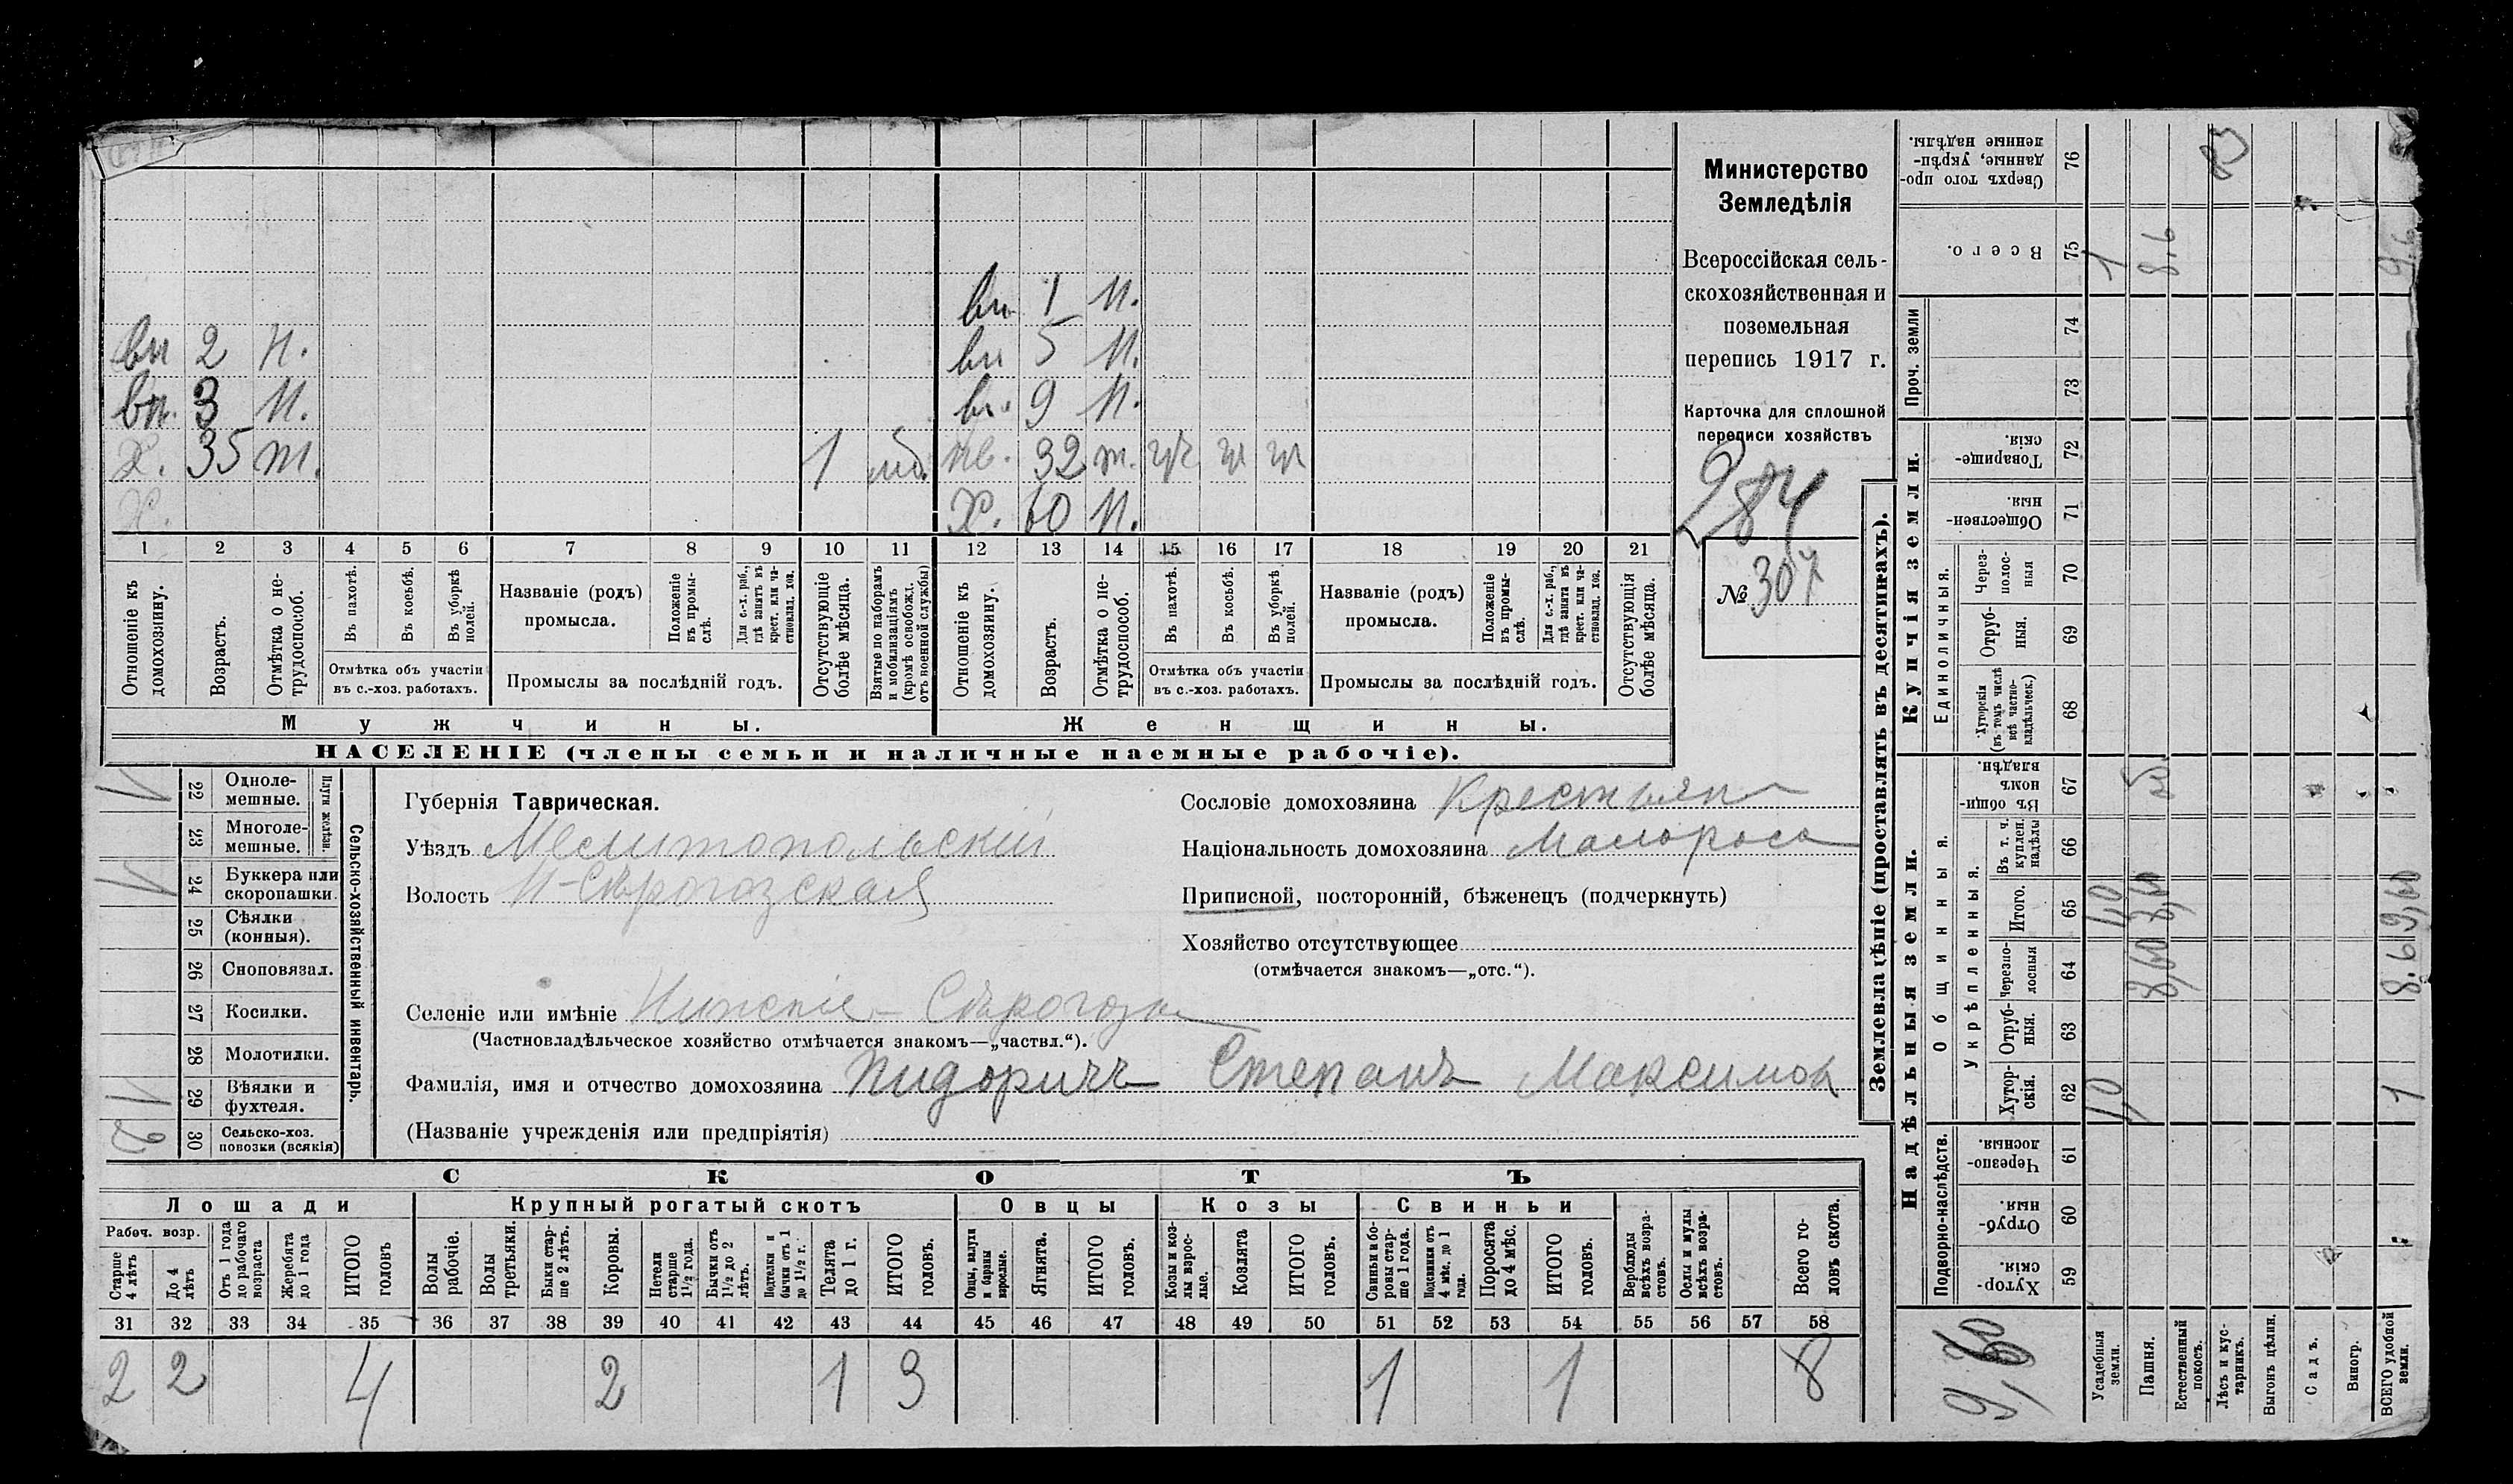 вн. 1 н.
вн 2 н. вн 5 н.
вн. 3 н. вн. 9 н.
х. 35 т. 1 мб. нев. 32 т. ч ч ч
х. х. 60 н.
1 2 3 4 5 6 7 8 9 10 11 12 13 14 15 16 17 18 19 20 21
Отношеніе къ домохозяину.
Возрастъ.
Отмѣтка о не-
трудоспособ.
Въ пахотѣ.
Въ косьбѣ.
Въ уборкѣ
полей.
Отмѣтка объ участіи
въ с.-хоз. работахъ.
Названіе (родъ)
промысла.
Положеніе
въ промы-
слѣ.
Для с.-х. раб.,
гдѣ занятъ въ
крест. или ча-
стновлад. хоз.
Промыслы за послѣдній годъ.
Отсутствующіе
болѣе мѣсяца.
Взятые по наборамъ
и мобилизаціямъ
(кромѣ освобожд.
отъ военной службы)
Отношеніе къ
домохозяину.
Возрастъ.
Отмѣтка о не-
трудоспособ.
Въ пахотѣ.
Въ косьбѣ.
Въ уборкѣ
полей.
Отмѣтка объ участіи
въ с.-хоз. работахъ.
Названіе (родъ)
промысла.
Положеніе
въ промы-
слѣ.
Для с.-х. раб.,
гдѣ занята въ
крест. или ча-
стновлад. хоз.
Промыслы за послѣдній годъ.
Отсутствующія
болѣе мѣсяца.
Мужчины.
Женщины.
НАСЕЛЕНІЕ (члены семьи и наличные наемные рабочіе).
Министерство
Земледѣлія
Всероссійская сель-
скохозяйственная и
поземельная
перепись 1917 г.
Карточка для сплошной
переписи хозяйствъ
284
№ 307
22 Одноле-
мешные.
23 Многоле-
мешные.
Плуги желѣзн.
24 Буккера или
скоропашки.
25 Сѣялки
(конныя).
26 Сноповязал.
27 Косилки.
28 Молотилки.
29 Вѣялки и
фухтеля.
30 Сельско-хоз.
повозки (всякія)
Сельско-хозяйственный инвентарь.
1
1
1
2
Губернія Таврическая.
Уѣздъ Мелитопольскій
Волость Н-Сѣрогозская
Селеніе или имѣніе Нижніе-Сѣрогозы
(Частновладѣльческое хозяйство отмѣчается знакомъ—„частвл.“).
Фамилія, имя и отчество домохозяина Пидоричъ Степанъ Максимов
(Названіе учрежденія или предпріятія)
Сословіе домохозяина Крестьян
Національность домохозяина Малоросс
Приписной, посторонній, бѣженецъ (подчеркнуть)
Хозяйство отсутствующее
(отмѣчается знакомъ—„отс.“).
СКОТЪ
Лошади
Крупный рогатый скотъ
Овцы
Козы
Свиньи
Рабоч. возр.
Старше
4 лѣтъ
До 4
лѣтъ
Отъ 1 года
до рабочаго
возраста
Жеребята
до 1 года
ИТОГО
головъ
Волы
рабочіе.
Волы
третьяки.
Быки стар-
ше 2 лѣтъ.
Коровы.
Нетели
старше
1½ года.
Бычки отъ
1½ до 2
лѣтъ.
Подтелки и
бычки отъ 1
до 1½ г.
Телята
до 1 г.
ИТОГО
головъ.
Овцы, валухи
и бараны
взрослые.
Ягнята.
ИТОГО
головъ.
Козы и коз-
лы взрос-
лые.
Козлята
ИТОГО
головъ.
Свиньи и бо-
ровы стар-
ше 1 года.
Подсвинки отъ
4 мѣс. до 1
года.
Поросята
до 4 мѣс.
ИТОГО
головъ.
Верблюды
всѣхъ возра-
стовъ.
Ослы и мулы
всѣхъ возра-
стовъ.
Всего го-
ловъ скота.
31 32 33 34 35 36 37 38 39 40 41 42 43 44 45 46 47 48 49 50 51 52 53 54 55 56 57 58
2 2 4 2 1 3 1 1 8
Землевладѣніе (проставлять въ десятинахъ).
Купчія земли.
Надѣльныя земли.
Сверхъ того про-
данные, укрѣп-
ленные надѣлы.
76
Всего.
75 1 8,6 9,6
Проч. земли
74
73
Товарище-
скія.
72
Обществен-
ныя.
71
Единоличныя.
Через-
полос-
ныя
70
Отруб-
ныя.
69
Хуторскія
(въ томъ числѣ
всѣ частно-
владѣльческ.)
68
Общинныя.
Въ общин-
номъ
владѣн.
67
Укрѣпленныя.
Въ т. ч.
куплен.
надѣлы
66
Итого.
65 1,0 8,60 9,60
Черезпо-
лосныя
64 8,60 8.6
Отруб-
ныя.
63
Хутор-
скія.
62 1,0 1
Подворно-наслѣдств.
Черезпо-
лосныя.
61
Отруб-
ныя
60
Хутор-
скія.
59
9,60
Усадебныя
земли.
Пашня.
Естественный
покосъ.
Лѣсъ и кус-
тарникъ.
Выгонъ цѣлин.
Садъ.
Виногр.
ВСЕГО удобной
земли.